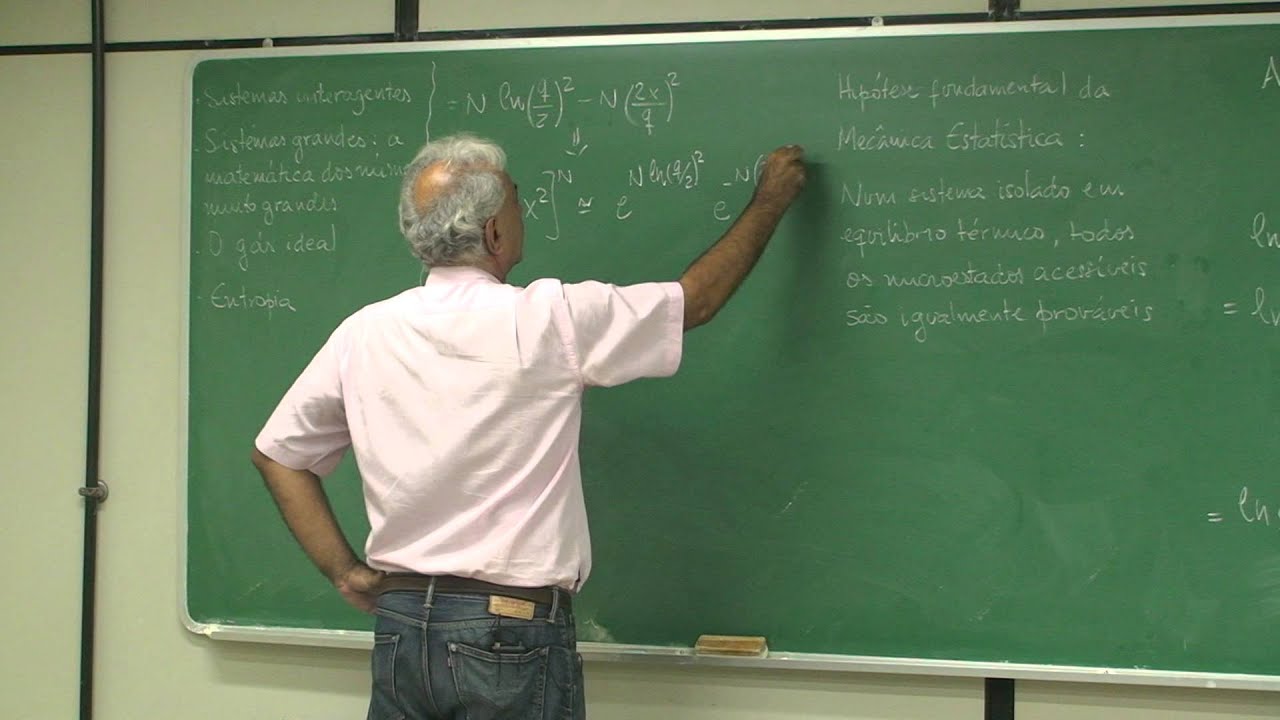 Sistemas interagentes
Sistemas grandes: a
matemática dos
muito grandes
O gás ideal
Entropia
= N ln(q/2)² - N(2x/q)²
⇓
x²]ᴺ ≃ e^{N ln(q/2)²} e^{-N(
Hipótese fundamental da
Mecânica Estatística:
Num sistema isolado em
equilíbrio térmico, todos
os microestados acessíveis
são igualmente prováveis
A
ln
= ln
= ln